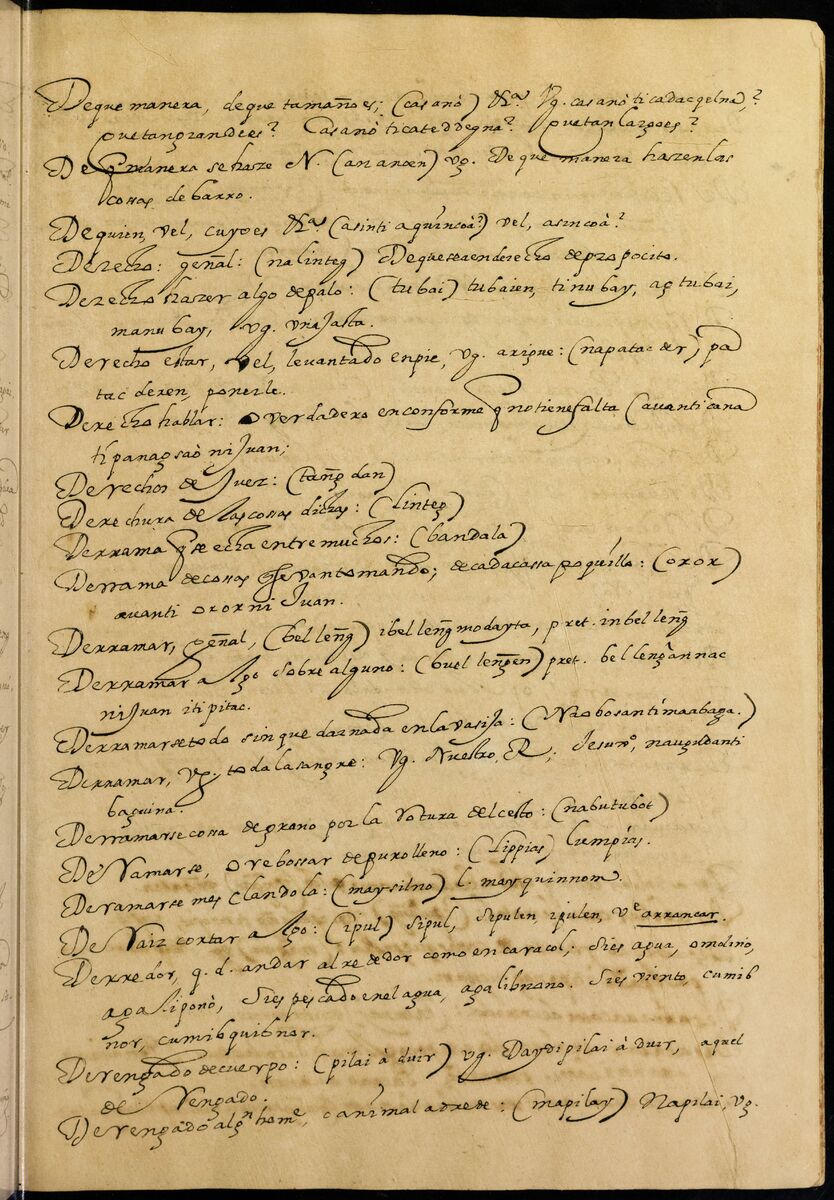 De que manera, de que tamaño es; (casanò) &ª. Vg. casanò ti cadacqelna,?
que tan grande es? Casanò ti cateddegna? que tan largo es?
De q manera se haze N. (ananoen) vg. De que manera hazen las
cossas de barro.
De quien, vel, cuyo es &ª (asinti aquincoà?) vel, asincoà?
Derecho: geñal: (nalinteg) De que sea en derecho de propocito.
Derecho hazer algo de palo: (tubai) tubaien, tinubay, agtubai,
manubay, vg. una Jasta.
Derecho estar, vel, levantado enpie, vg. arigue: (napatacder), pa
tacderen, ponerle.
Derecho hablar: o verdadero en conforme q no tiene falta (avanti cana
ti panagsaò ni Juan;
Derechos de Juez: (tang̃dan)
Derechura de las cossas dichas: (Linteg)
Derrama q se echa entre muchos: (bandala)
Derrama de cossas q se van tomando; de cada cassa poquillo: (oror)
avanti oror ni Juan.
Derramar, geñal, (belleng̃) ibelleng̃mo dayta, pret. inbelleng̃
Derramar algo sobre alguno: (buelleng̃en) pret. belleng̃annac
ni Juan iti pitac.
Derramarse todo sin que dar nada en la vasija: (Naobos anti maabaga.)
Derramar, vg. toda la sangre: Vg. Nuestro, R; Jesuxpo, naugod anti
bagguina.
Derramarse cossa de grano por la rotura del cesto: (nabutubot)
Derramarse, o rebossar de puro lleno: (Lippias) lumpias.
Deramarse mesclandola: (maysilno) l. mayquinnom.
De Raiz cortar algo: (ipul) sipul, sipulen, ipulen, vᵉ arrancar.
Derredor, q. d. andar al rededor como en caracol; sies agua, o molino,
agaliponò, sies pescado en el agua, agalibnano. sies viento, cumib
nor, cumibquibnor.
Derengado de cuerpo: (pilai à duir) vg. Daydi pilai à duir, aquel
de Rengado.
Derengado algᵒ home, o animal adrede: (mapilay) Napilai, vg.